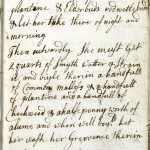 plantane & Clarbits
& let her take there of night and
morning
Then outwardly. She must Get
2 quarts of Smyth water & Strain
it and boyle therein a handfull
of Common mallos & a handfull
of plantine and a handfull of
Chickweed & a half penny worth of
alume and when well boyld let
her bath her Greevence therein